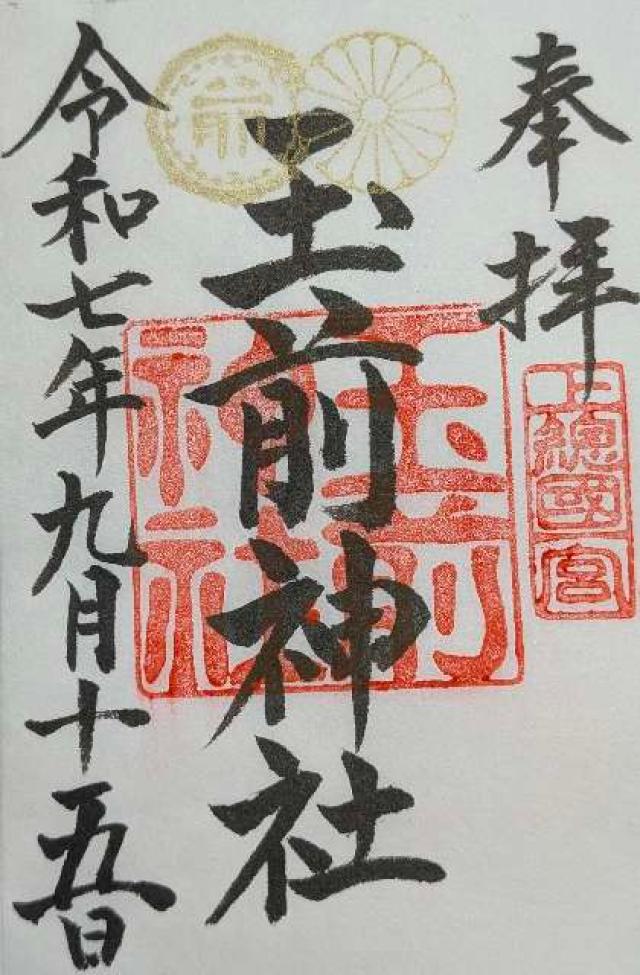 奉拝
上總國一宮
玉前神社
玉前神社
令和七年九月十五日